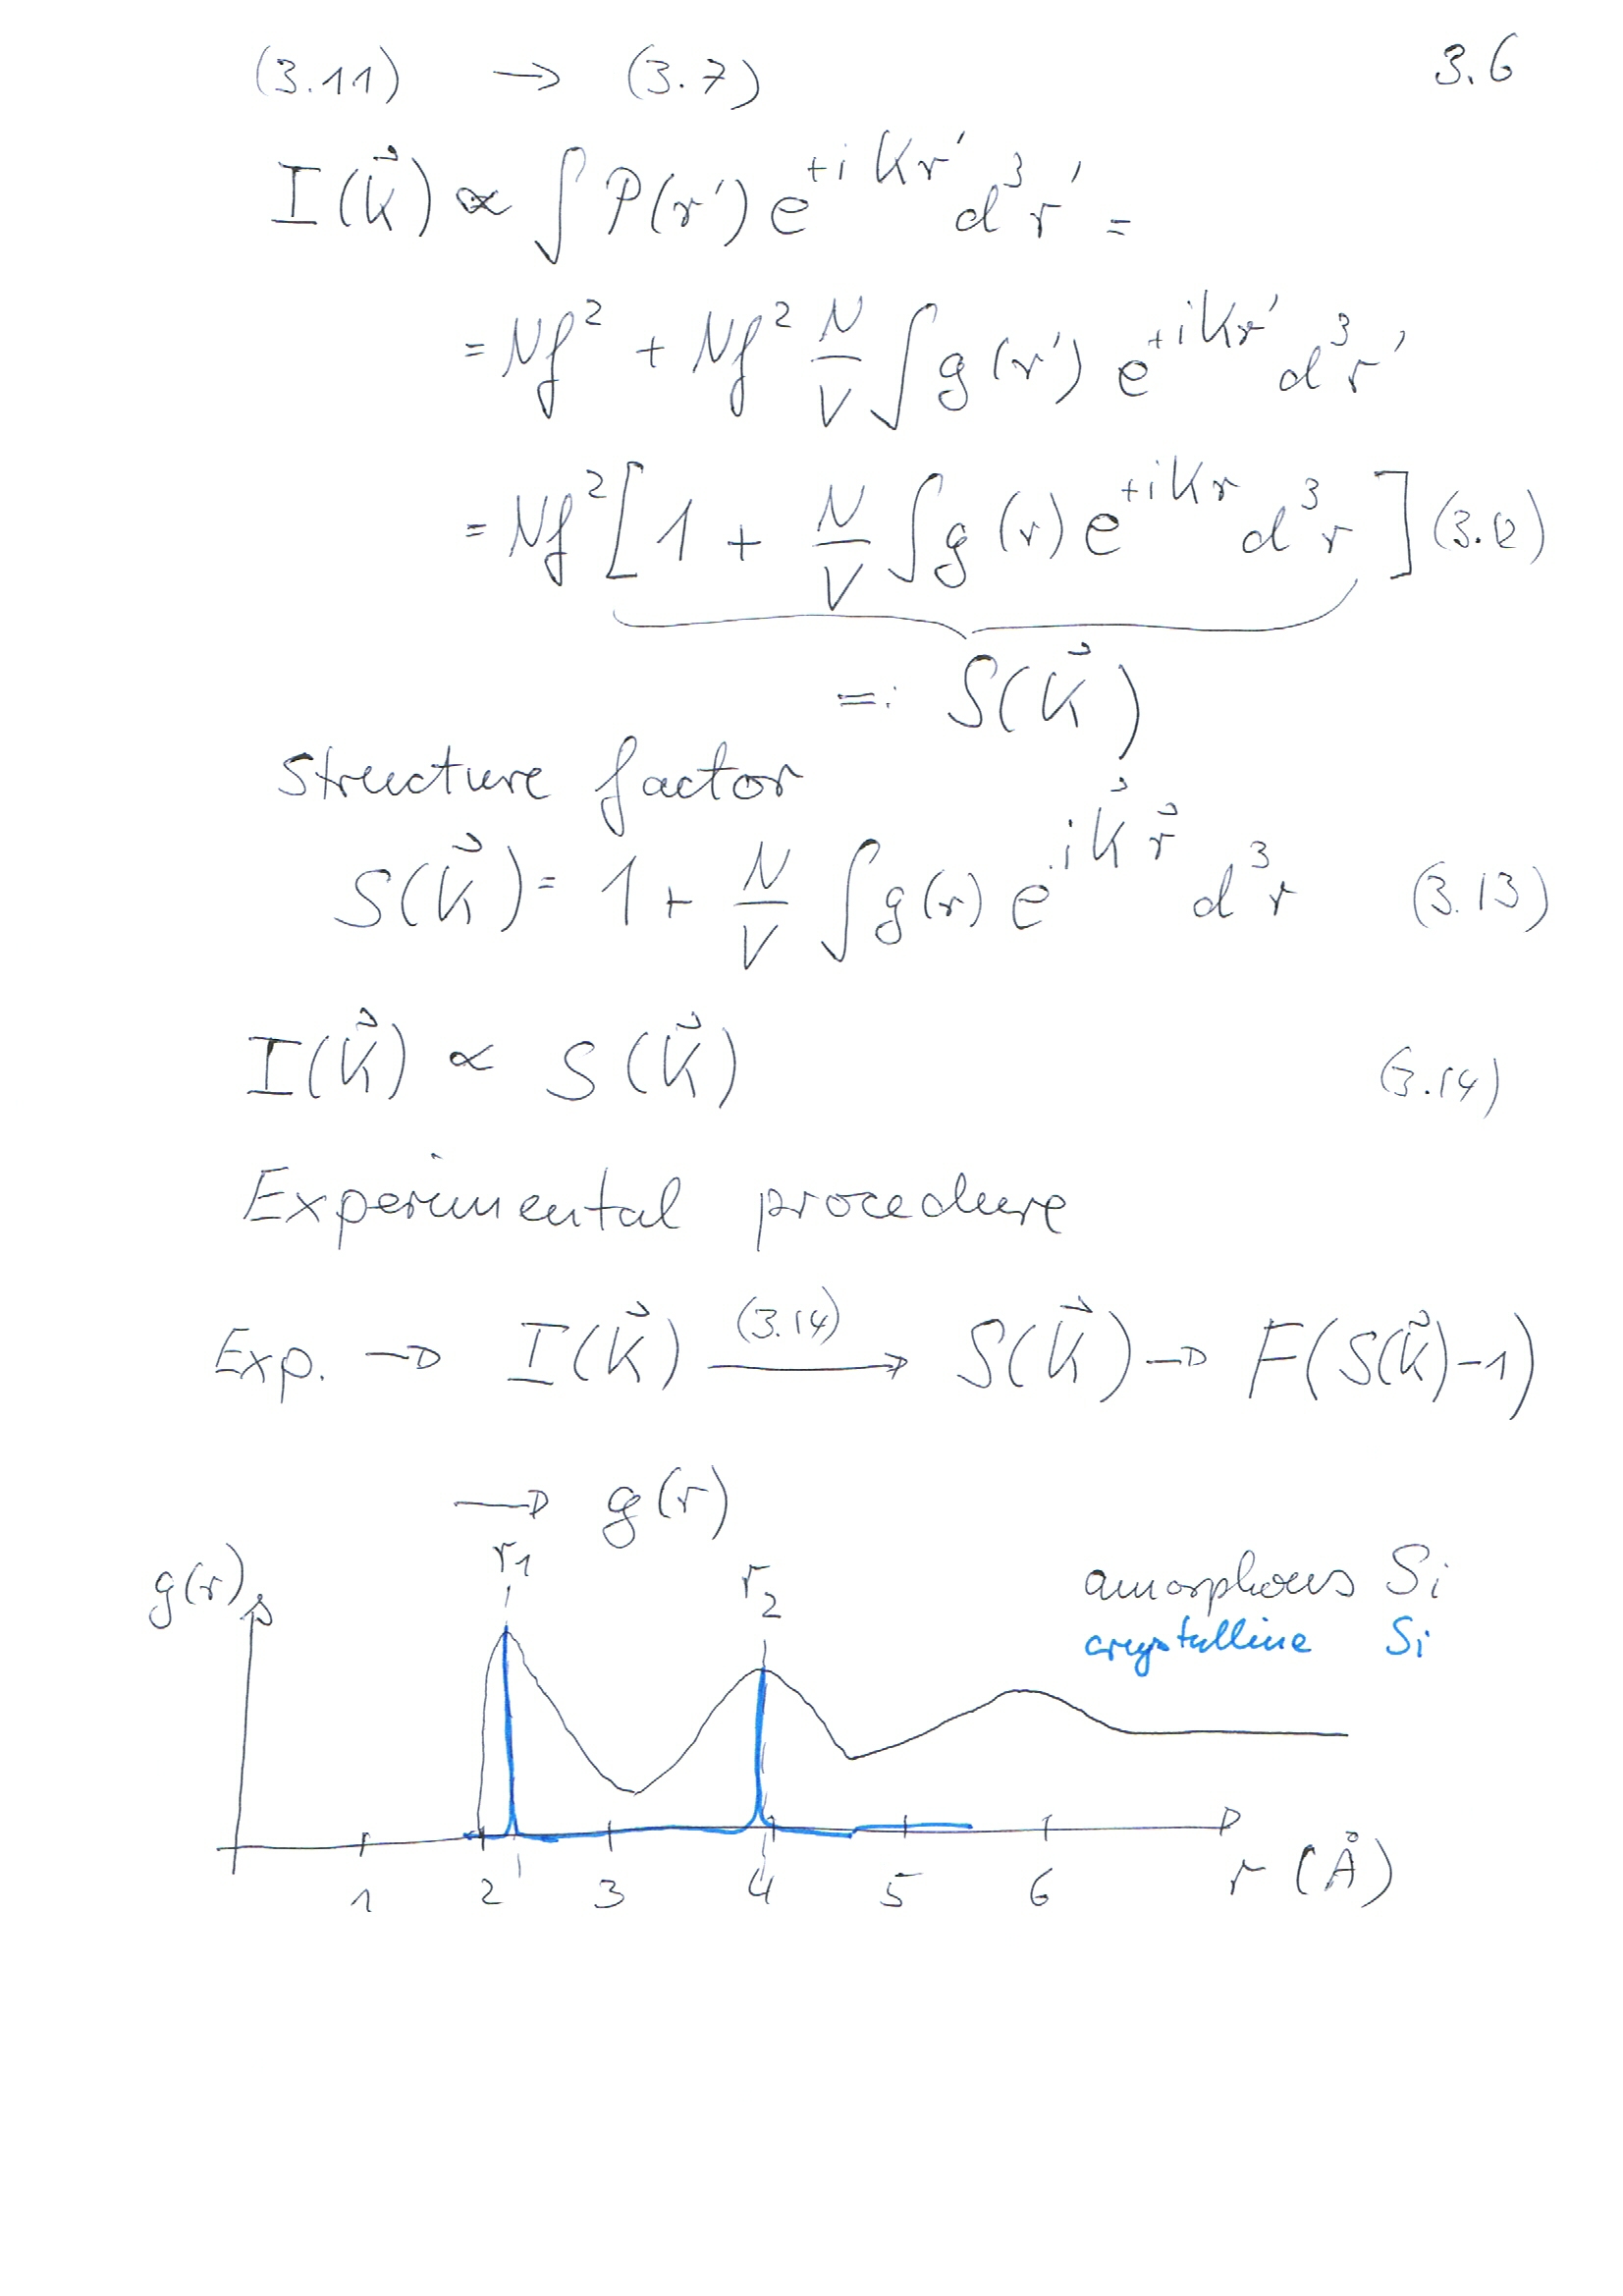 (3.11) → (3.7) 3.6
I(K⃗) ∝ ∫ P(r′) e^{+iKr′} d³r′ =
= Nf² + Nf² N/V ∫ g(r′) e^{+iKr′} d³r′
= Nf² [1 + N/V ∫ g(r) e^{+iKr} d³r ] (3.12)
=: S(K⃗)
Structure factor
S(K⃗) = 1 + N/V ∫ g(r) e^{iK⃗r⃗} d³r (3.13)
I(K⃗) ∝ S(K⃗) (3.14)
Experimental procedure
Exp. → I(K⃗) (3.14) → S(K⃗) → F(S(K⃗)-1)
→ g(r)
r₁
r₂
g(r)
amorphous Si
crystalline Si
1 2 3 4 5 6 r (Å)